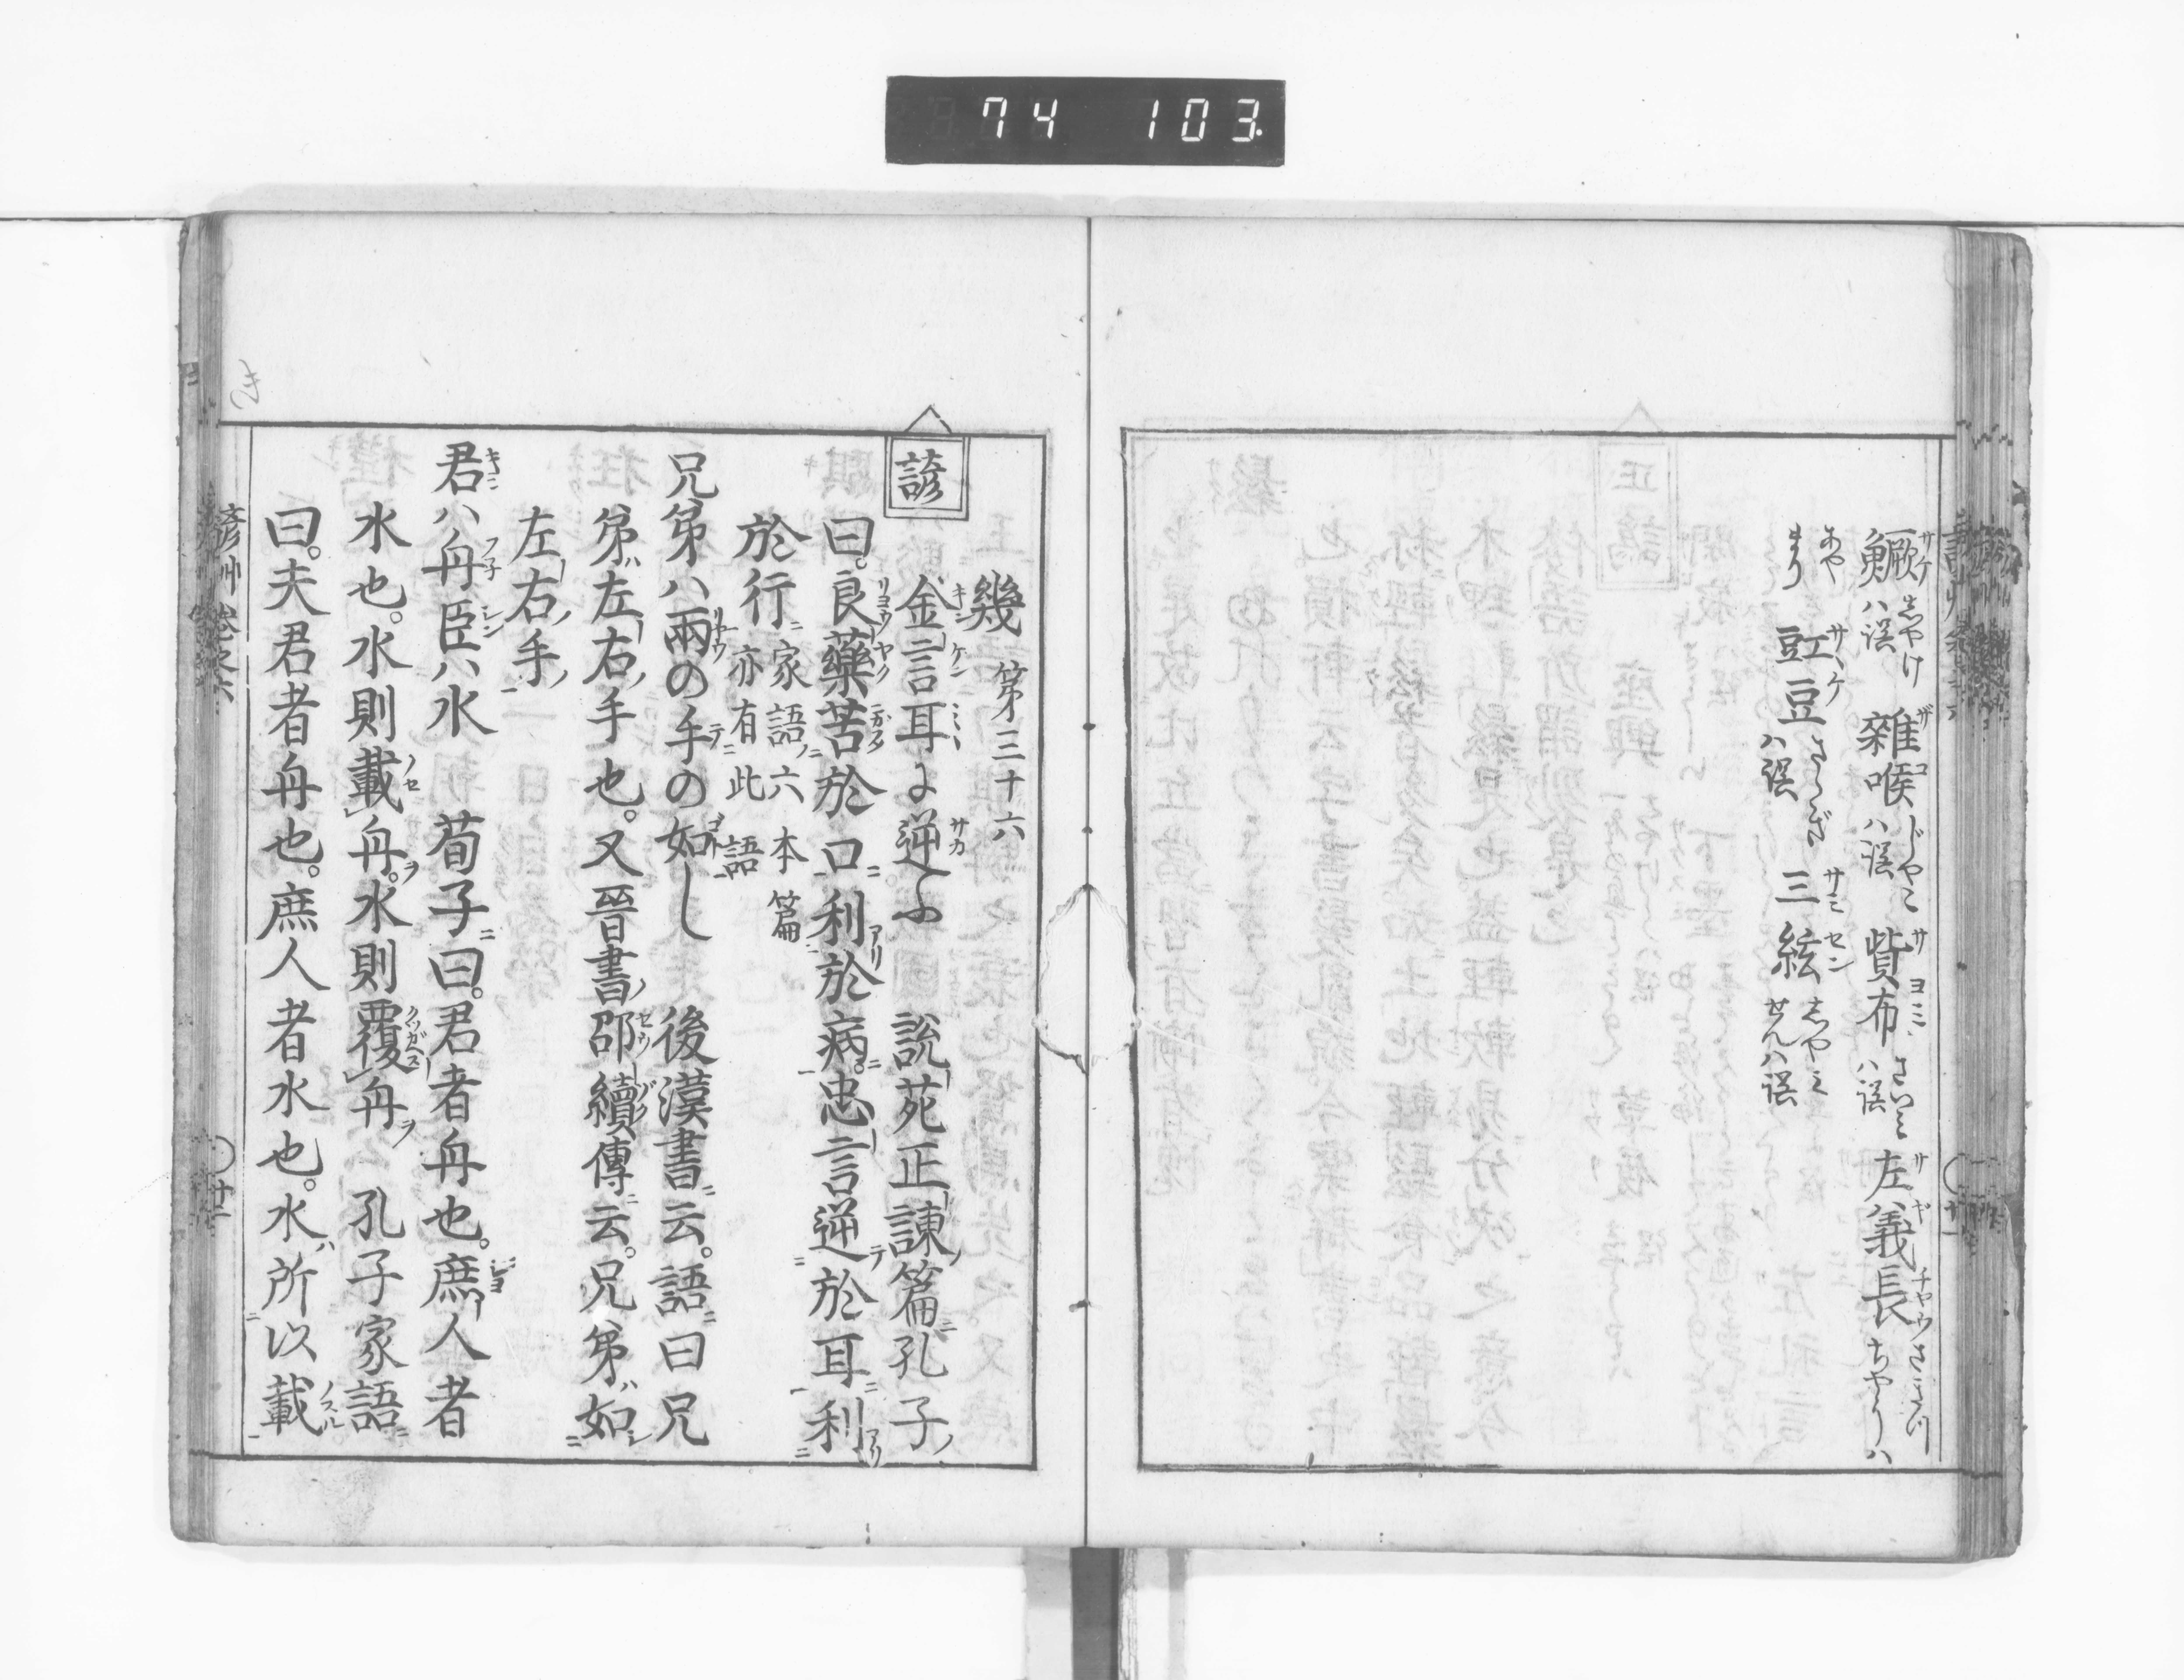 74 103.
鱖ハ誤 志やけ 雜喉ハ誤 じやこ 貲布ハ誤 さいミ 左義長 さぎつちやうハ
あやまり 豇豆ハ誤 さゝぎ 三絃 志やミせんハ誤
幾 第三十六
諺
金言耳に逆ふ 説苑正諫篇孔子
曰。良藥苦於口利於病。忠言逆於耳利
於行 家語六本篇亦有此語
兄弟ハ兩の手の如し 後漢書云。語曰兄
弟左右手也。又晉書邵續傳云。兄弟如
左右手
君ハ舟臣ハ水 荀子曰。君者舟也。庶人者
水也。水則載舟。水則覆舟 孔子家語
曰。夫君者舟也。庶人者水也。水所以載
諺艸卷之六 廿一
き